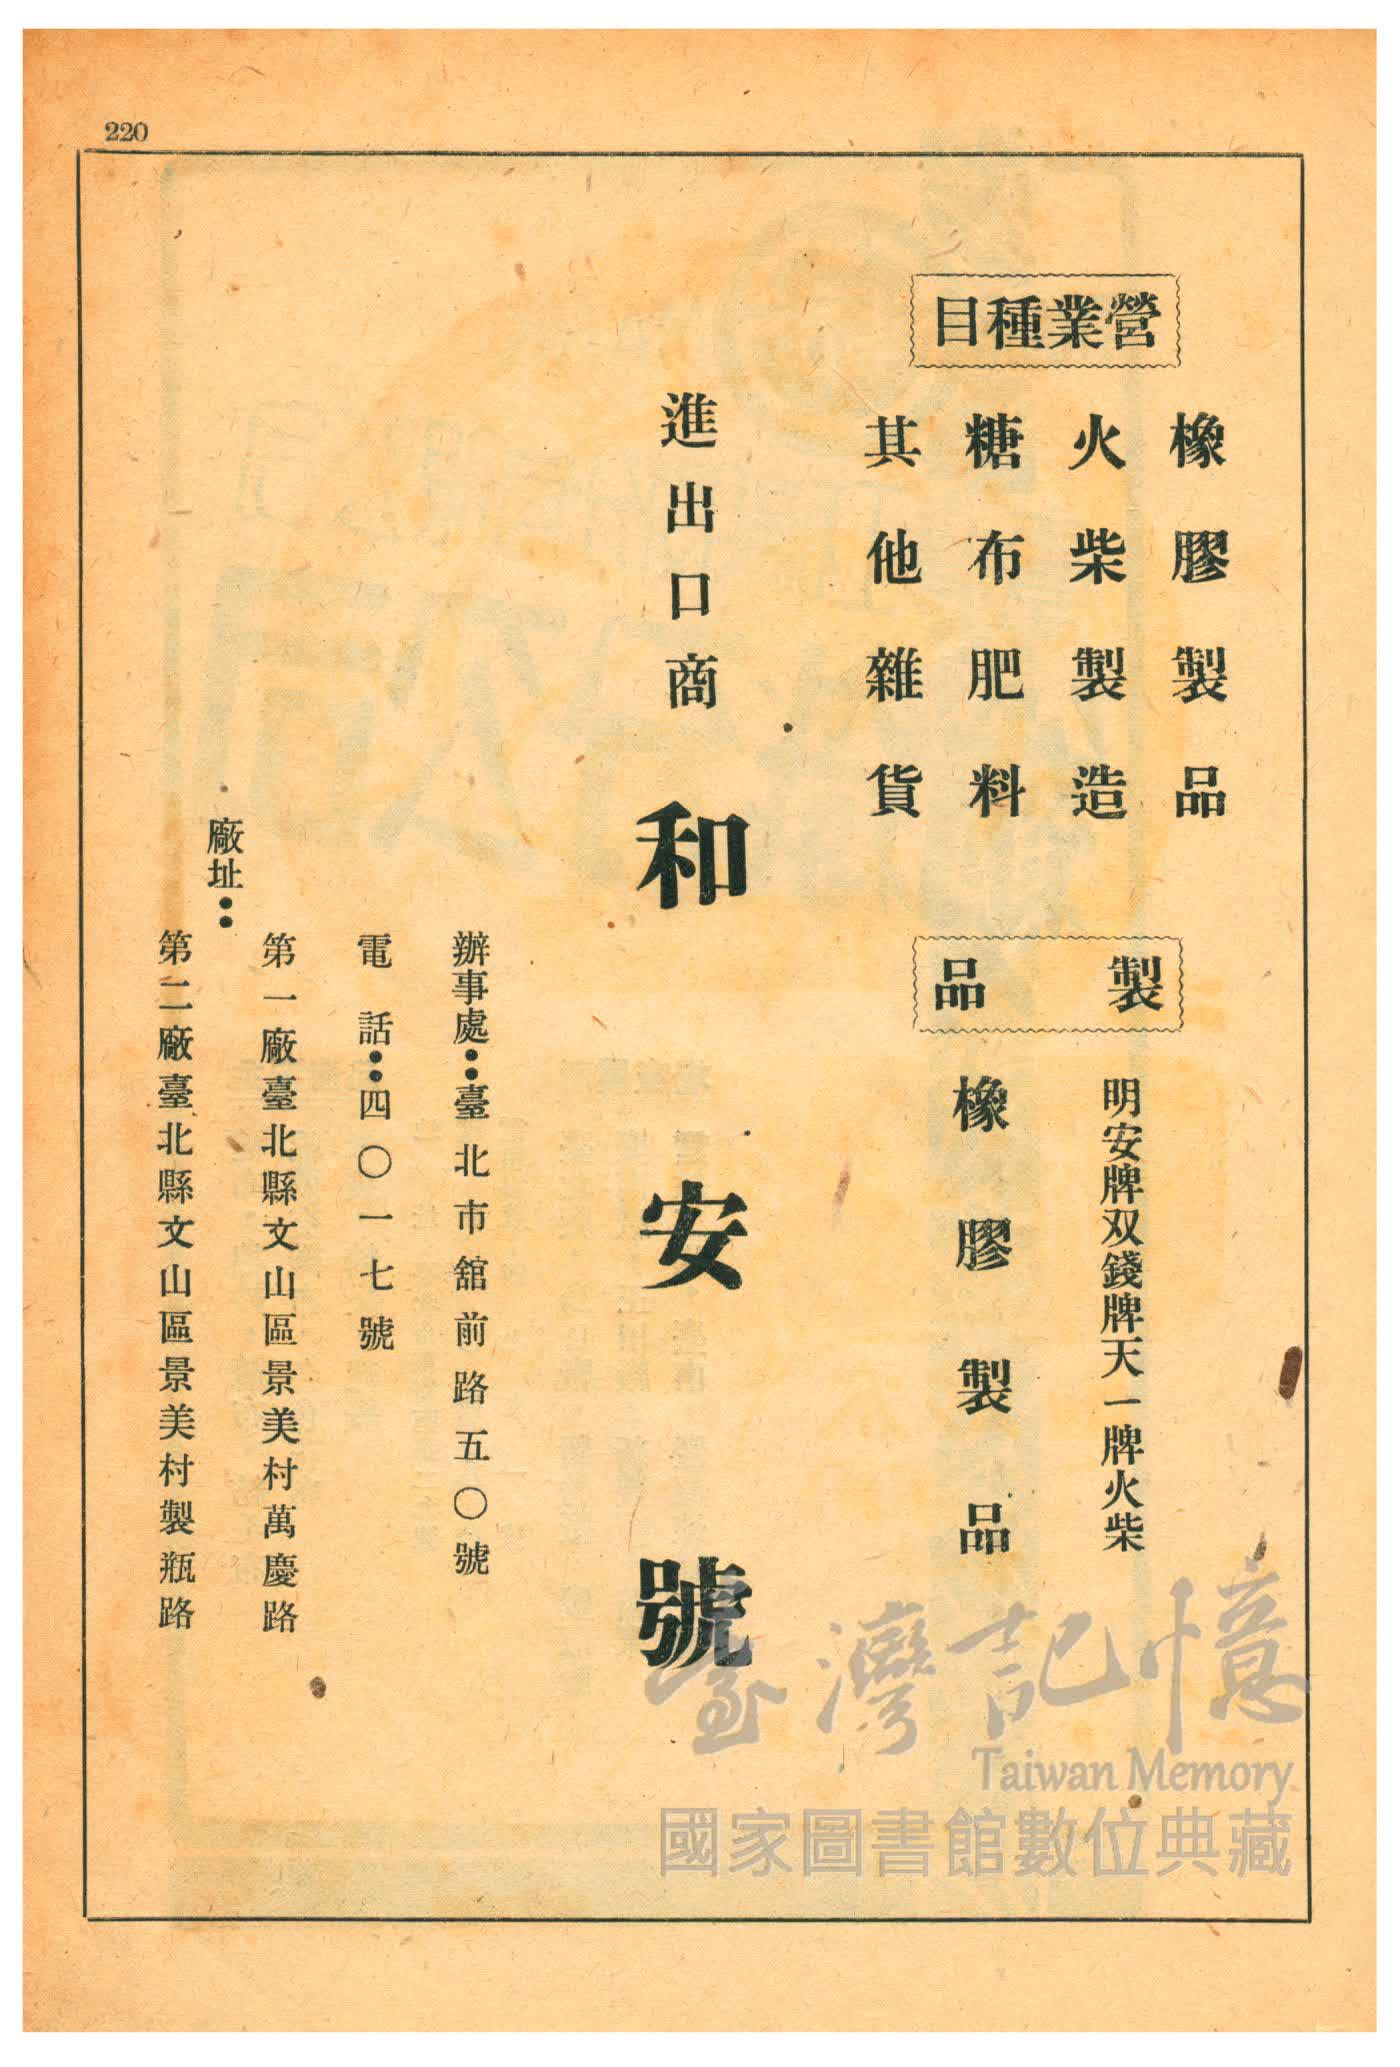 220
營業種目
橡膠製品
火柴製造
糖布肥料
其他雜貨
製品
明安牌双錢牌天一牌火柴
橡膠製品
進出口商
和安號
辦事處：臺北市舘前路五〇號
電話：四〇一七號
廠址：
第一廠臺北縣文山區景美村萬慶路
第二廠臺北縣文山區景美村製瓶路
臺灣記憶
Taiwan Memory
國家圖書館數位典藏